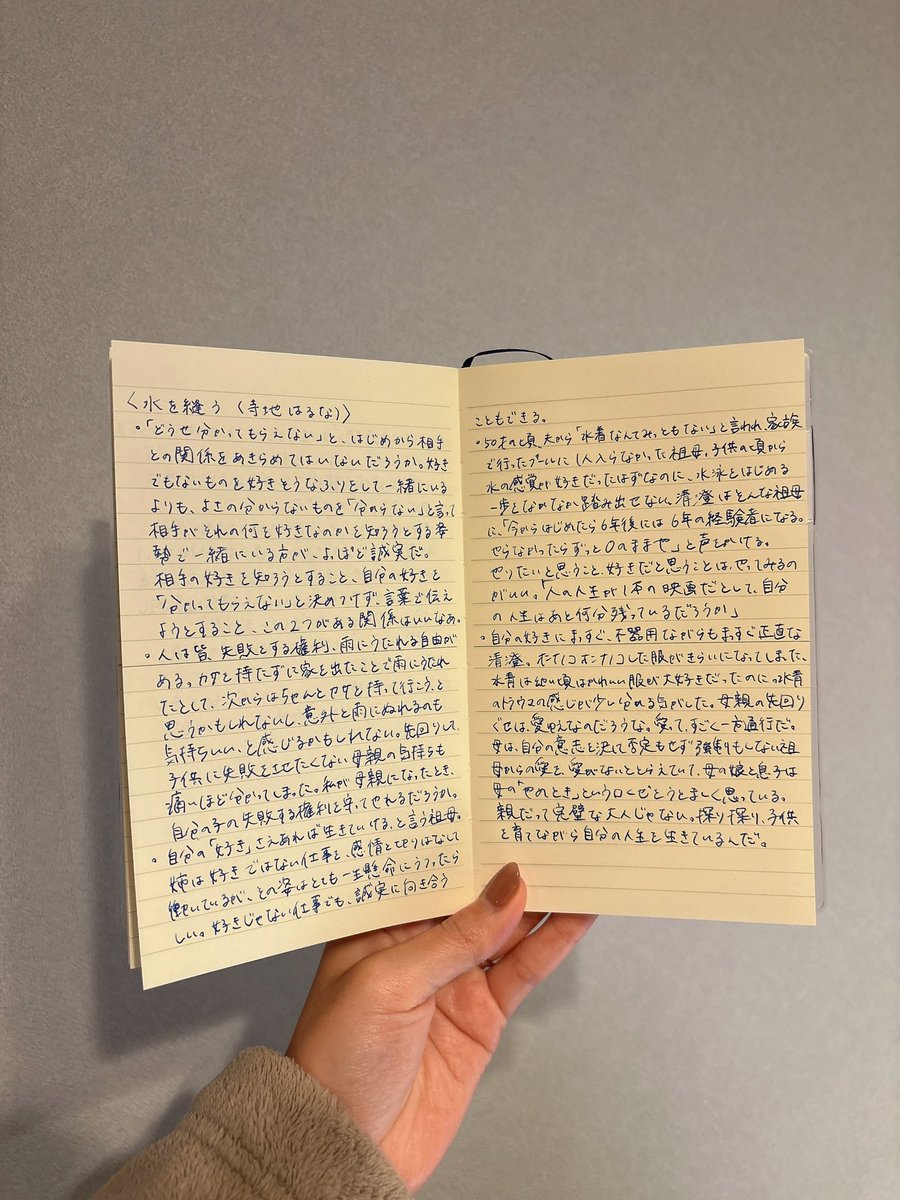 〈水を縫う(寺地はるな)〉
・「どうせ分かってもらえない」と、はじめから相手
との関係をあきらめてはいないだろうか。好き
でもないものを好きそうなふりをして一緒にいる
よりも、よさの分からないものを「分からない」と言って
相手がそれの何を好きなのかを知ろうとする姿
勢で一緒にいる方が、よっぽど誠実だ。
相手の好きを知ろうとすること、自分の好きを
「分かってもらえない」と決めつけず、言葉で伝え
ようとすること、この2つがある関係はいいなあ。
・人は皆、失敗する権利、雨にうたれる自由が
ある。カサを持たずに家を出たことで雨にうたれ
たとして、次からはちゃんとカサを持って行こう、と
思うかもしれないし、意外と雨にぬれるのも
気持ちいい、と感じるかもしれない。先回りして、
子供に失敗をさせたくない母親の気持ちも
痛いほど分かってしまった。私が母親になったとき、
自分の子の失敗する権利を守ってやれるだろうか。
・自分の「好き」さえあれば生きていける、と言う祖母。
姉は好きではない仕事を、感情を切りはなして
働いているが、その姿はとても一生懸命にうつったら
しい。好きじゃない仕事でも、誠実に向き合う
こともできる。
・50才の頃、夫から「水着なんてみっともない」と言われ、家族
で行ったプールに1人入らなかった祖母。子供の頃から
水の感覚が好きだったはずなのに、水泳をはじめる
一歩をなかなか踏み出せない。清澄はそんな祖母
に、「今からはじめたら6年後には6年の経験者になる。
やらなかったらずっと0のままや」と声をかける。
やりたいと思うこと、好きだと思うことは、やってみるの
がいい。「人の人生が1本の映画だとして、自分
の人生はあと何分残っているだろうか」
・自分の好きにまっすぐ、不器用ながらもまっすぐ正直な
清澄。オンナノコオンナノコした服がきらいになってしまった、
水青は幼い頃はかわいい服が大好きだったのに。水青
のトラウマの感じが少し分かる気がした。母親の先回り
ぐせは、愛ゆえなのだろうな。愛って、すごく一方通行だ。
母は、自分の意志を決して否定もせず強制もしない祖
母からの愛を、愛がないととらえていて、母の娘と息子は
母の「やめとき」というロぐせをうとましく思っている。
親だって完璧な大人じゃない。探り探り、子供
を育てながら自分の人生を生きているんだ。